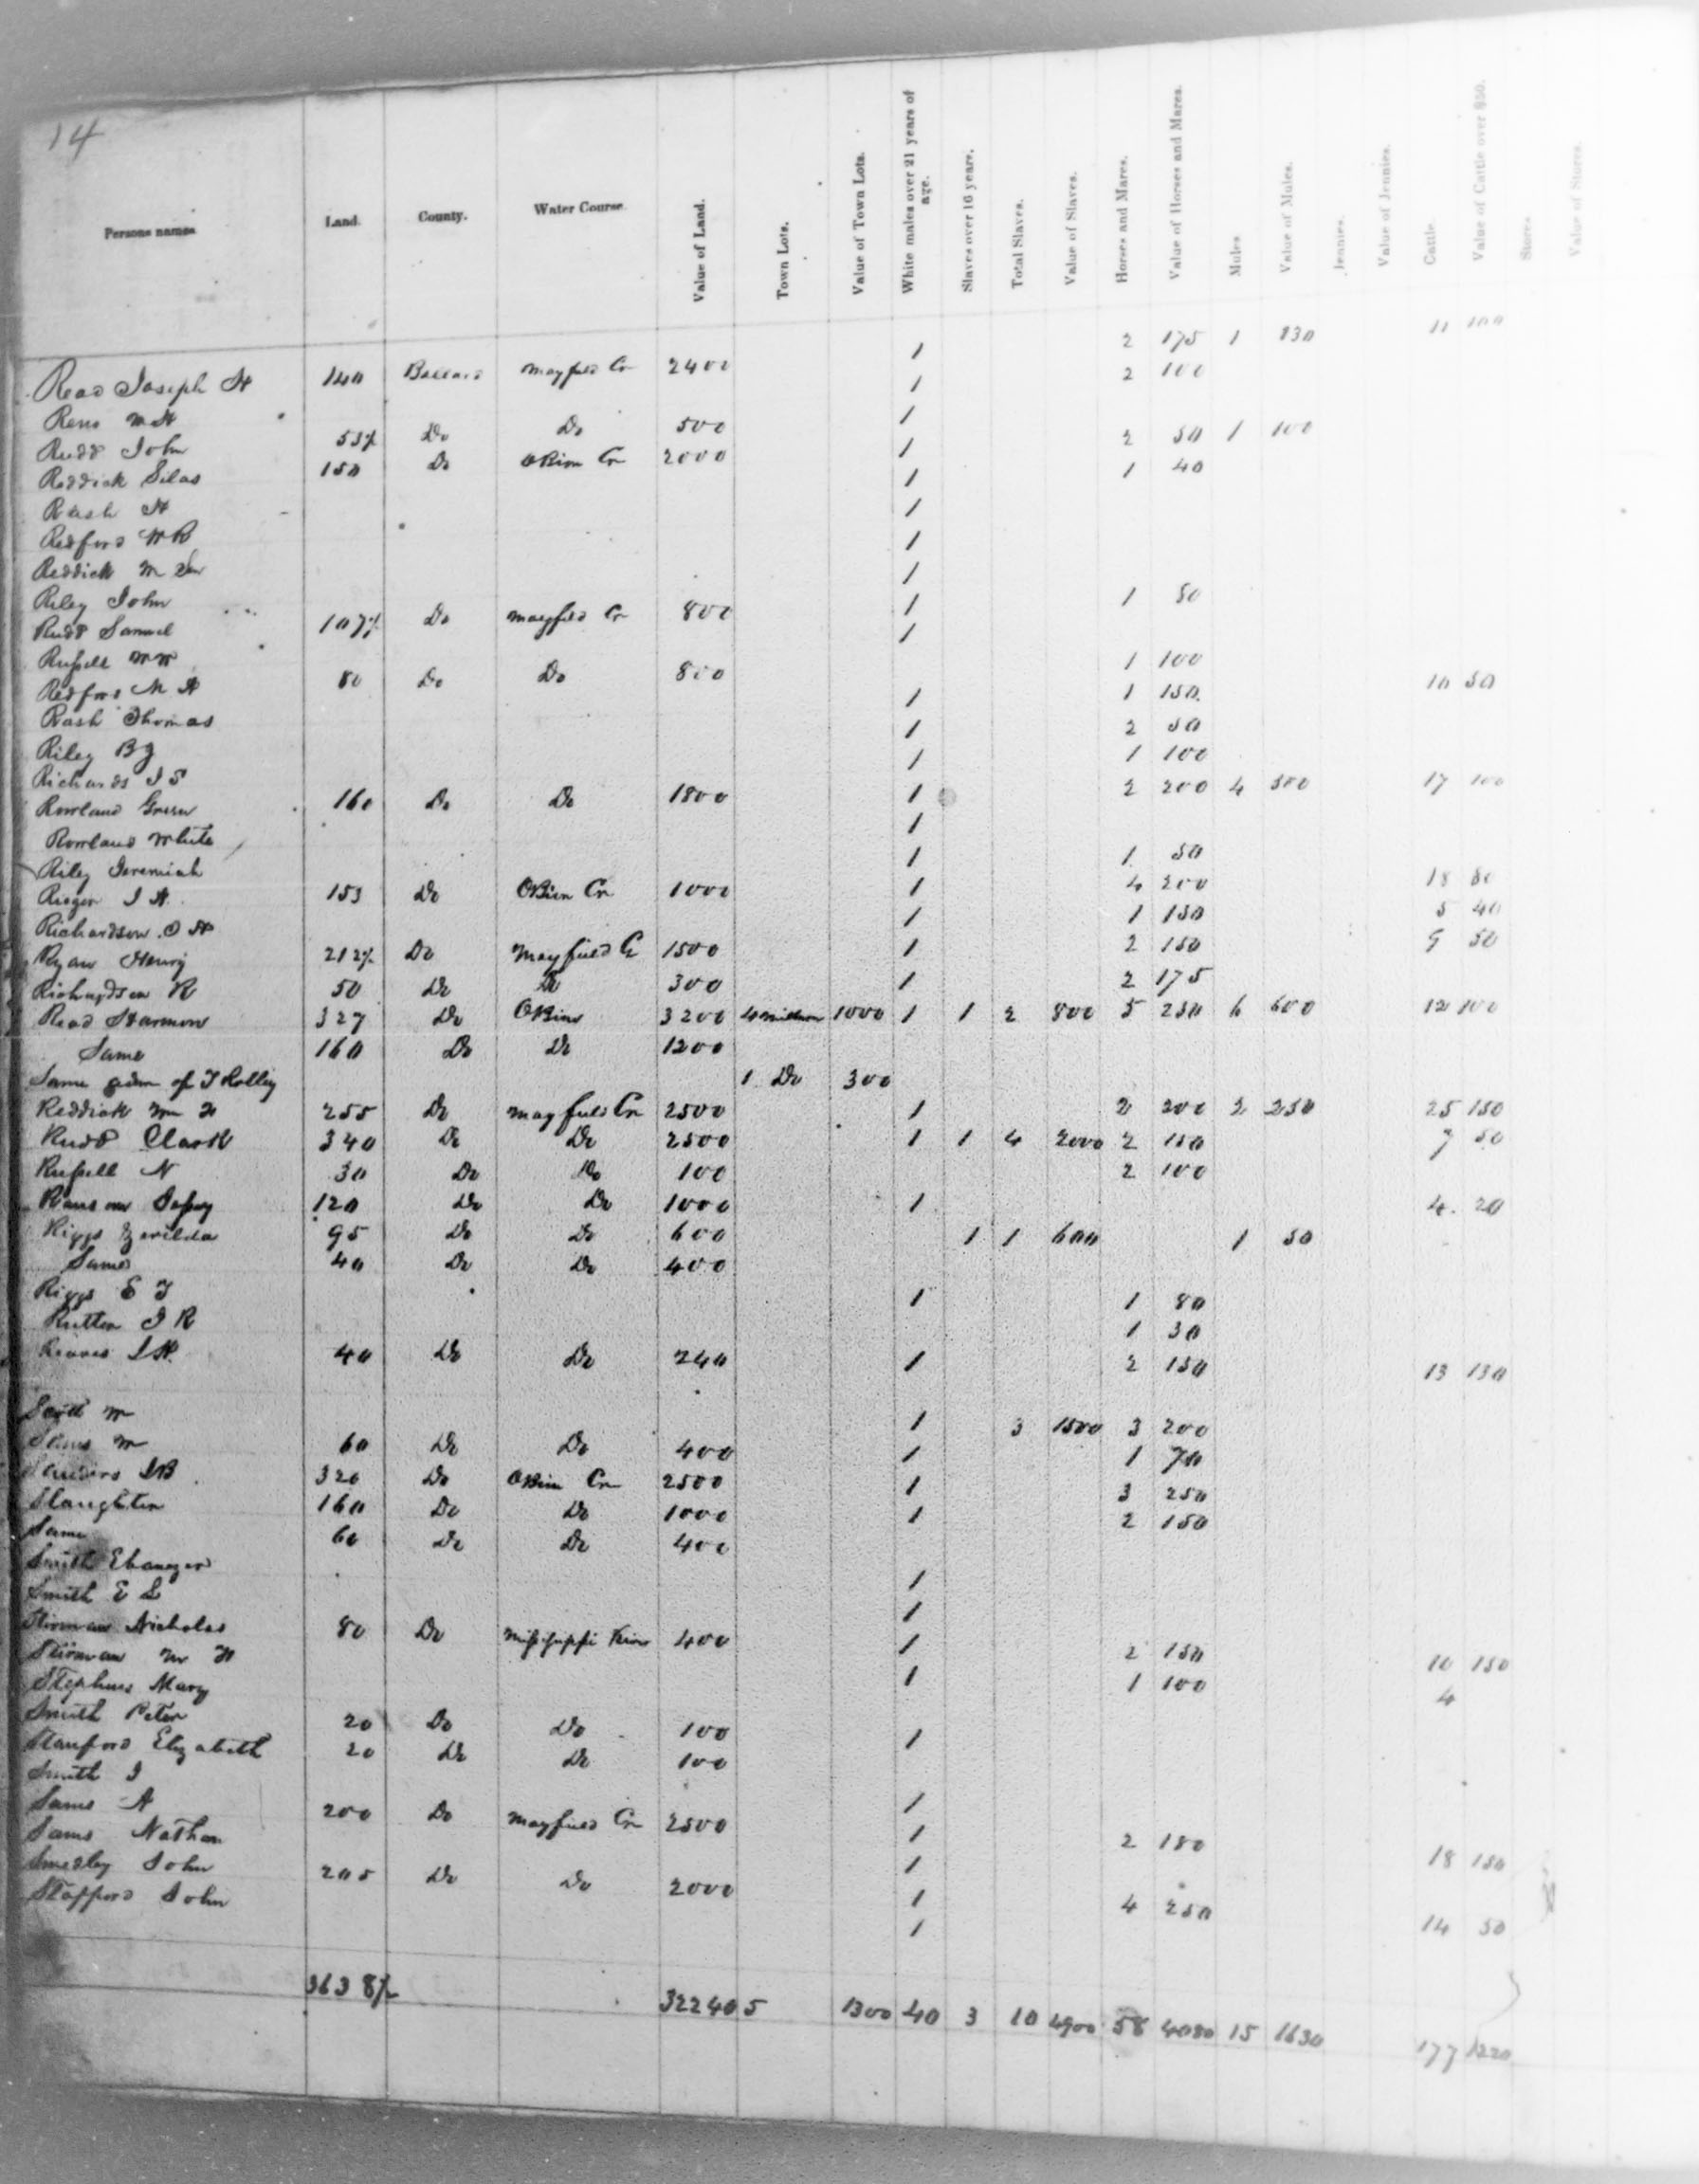 14
Persons names Land. County. Water Course. Value of Land. Town Lots. Value of Town Lots. White males over 21 years of age. Slaves over 16 years. Total Slaves. Value of Slaves. Horses and Mares. Value of Horses and Mares. Mules Value of Mules. Jennies. Value of Jennies. Cattle. Value of Cattle over $50. Stores. Value of Stores.
Read Joseph H 140 Ballard Mayfield Cr 2400 1 2 175 1 130 11 100
M H 1 2 100
Rudd John 53½ Do Do 500 1
Reddick Silas 150 Do OBion Cr 2000 1 2 50 1 100
Rash H 1 1 40
Redford W R 1
Reddick M 1
Riley John 1
Rudd Samuel 107½ Do Mayfield Cr 800 1 1 50
Russell W W 1
Redford M H 80 Do Do 800 1 100
Rash Thomas 1 1 150 10 50
Riley B J 1 2 50
Richards J S 1 1 100
Rowland Green 160 Do Do 1800 1 2 200 4 300 17 100
Rowland White 1
Riley Jeremiah 1 1 50
Rieger J H 153 Do OBion Cr 1000 1 4 200 18 80
Richardson O H 1 1 150 5 40
Ryan Henry 212½ Do Mayfield Cr 1500 1 2 150 9 50
Richardson R 50 Do Do 300 1 2 175
Read Harmon 327 Do OBion 3200 4 1000 1 1 2 800 5 250 6 600 12 100
Same 160 Do Do 1200
Same of J Rolley 1 Do 300
Reddick Wm H 255 Do Mayfield Cr 2500 1 2 200 2 250 25 150
Rudd Clark 340 Do Do 2500 1 1 4 2000 2 150 7 50
Russell N 30 Do Do 100 2 100
Ransom 120 Do Do 1000 1 4 20
Riggs Zerilda 95 Do Do 600 1 1 600 1 50
Same 40 Do Do 400
Riggs E J 1 1 80
Rutter J R 1 30
Reaves J H 40 Do Do 240 1 2 150 13 130
Scott M 1 3 1500 3 200
Sams M 60 Do Do 400 1 1 70
Sanders J B 320 Do OBion Cr 2500 1 3 250
Slaughter 160 Do Do 1000 1 2 150
Same 60 Do Do 400
Smith Ebanezer 1
Smith E L 1
Stirman Nicholas 80 Do Mississippi River 400 1 2 150 10 150
Stirman Wm H 1 1 100 4
Stephens Mary
Smith Peter 20 Do Do 100 1
Stanford Elizabeth 20 Do Do 100
Smith J 1
Sams A 200 Do Mayfield Cr 2500 1 2 180 18 150
Sams Nathan 1
Smedley John 205 Do Do 2000 1 4 250 14 50
Stafford John 1
3638½ 32240 5 1300 40 3 10 4900 58 4080 15 1630 177 1220